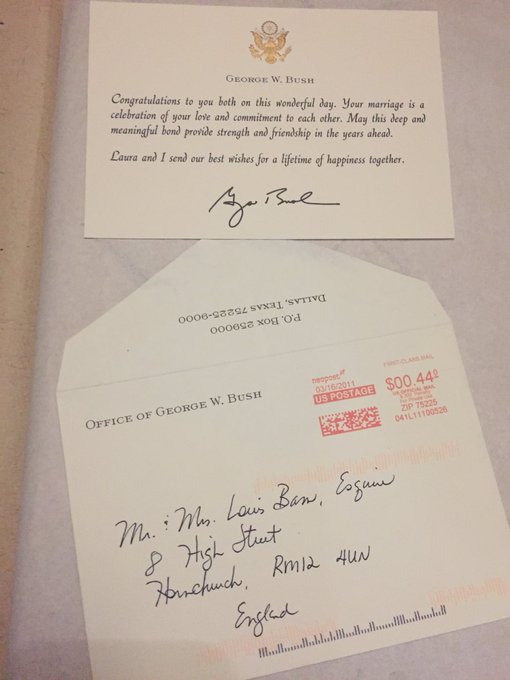 GEORGE W. BUSH
Congratulations to you both on this wonderful day. Your marriage is a
celebration of your love and commitment to each other. May this deep and
meaningful bond provide strength and friendship in the years ahead.
Laura and I send our best wishes for a lifetime of happiness together.
P.O. BOX 259000
DALLAS, TEXAS 75225-9000
OFFICE OF GEORGE W. BUSH
neopost
03/16/2011
US POSTAGE
FIRST-CLASS MAIL
$00.44⁰
ZIP 75225
041L11100526
Mr. & Mrs. Louis Bass, Esquire
8 High Street
Hornchurch, RM12 4UN
England